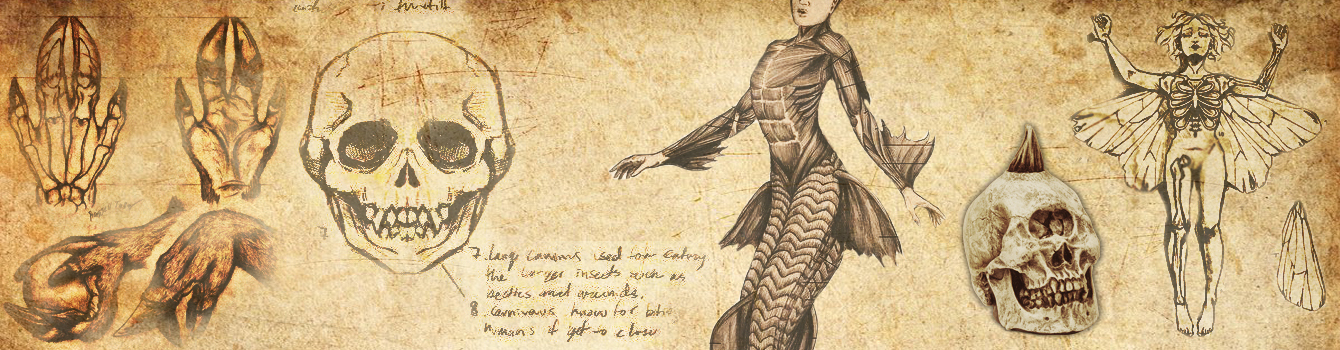 7. large canines used for eating
the larger insects such as
beetles and aracnids.
8. carnivours know for biting
humans if get to close
7